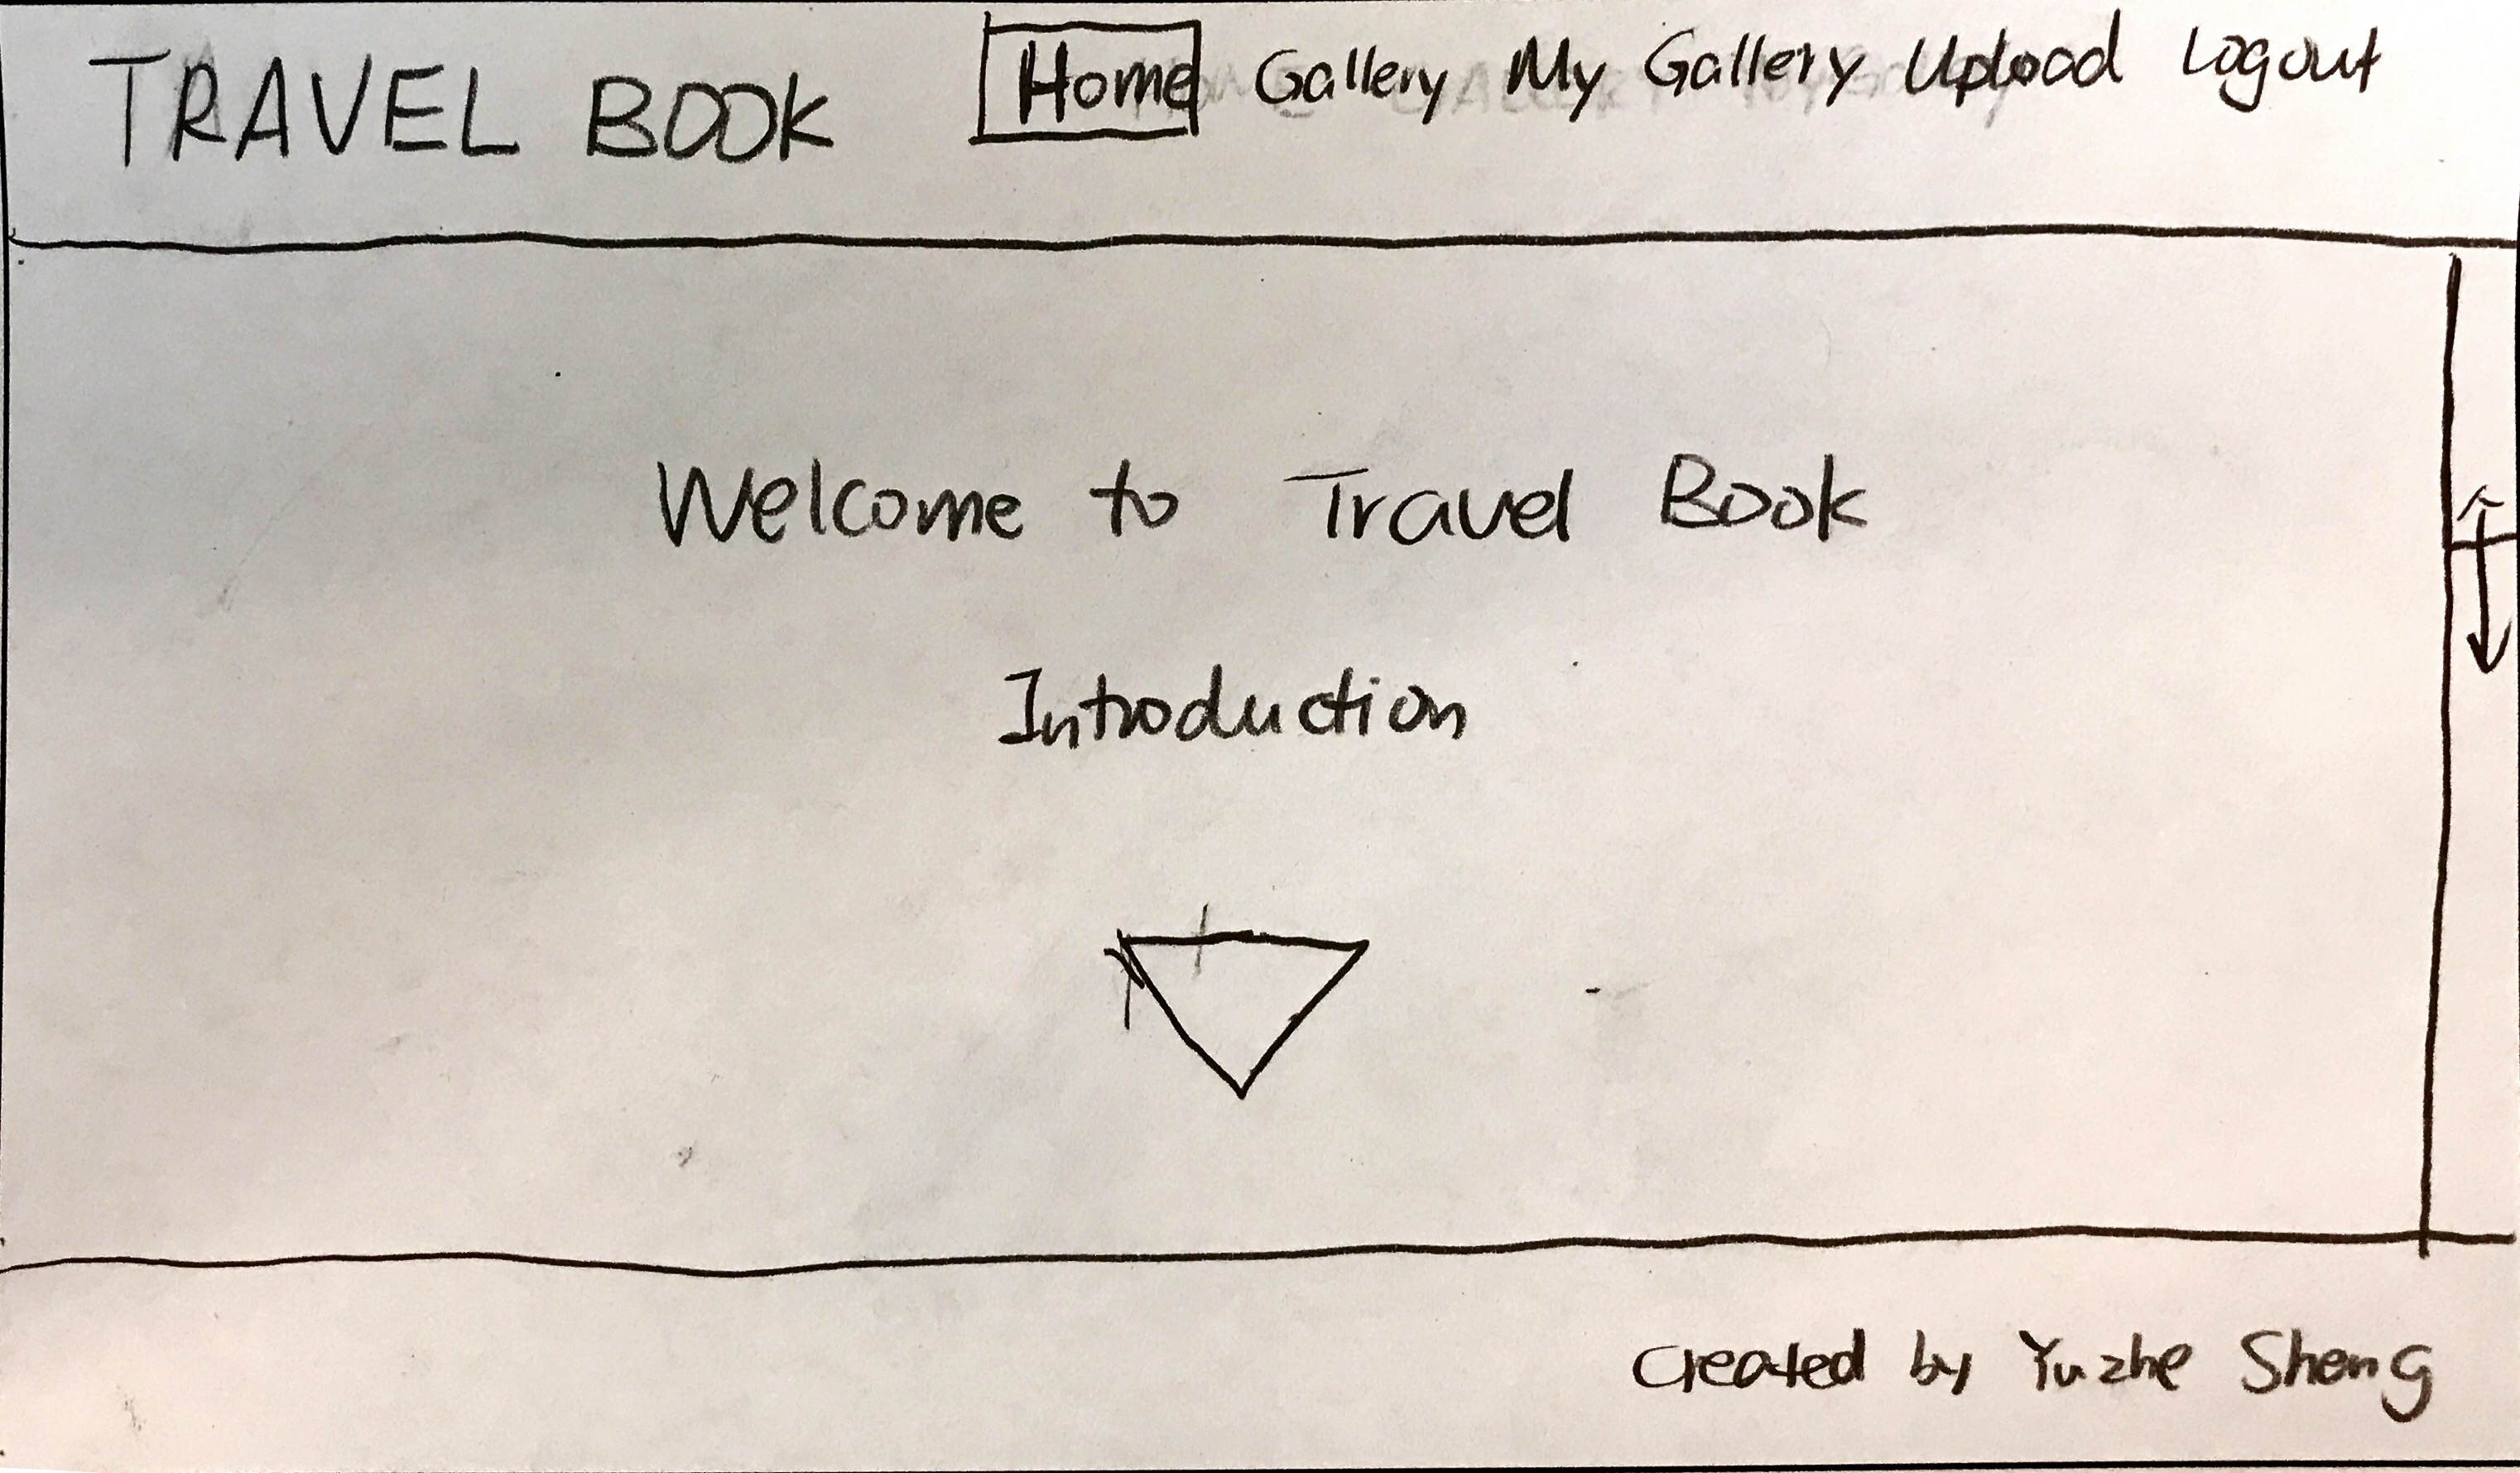 TRAVEL BOOK
Home Gallery My Gallery Upload Logout
Welcome to Travel Book
Introduction
Created by Yuzhe Sheng